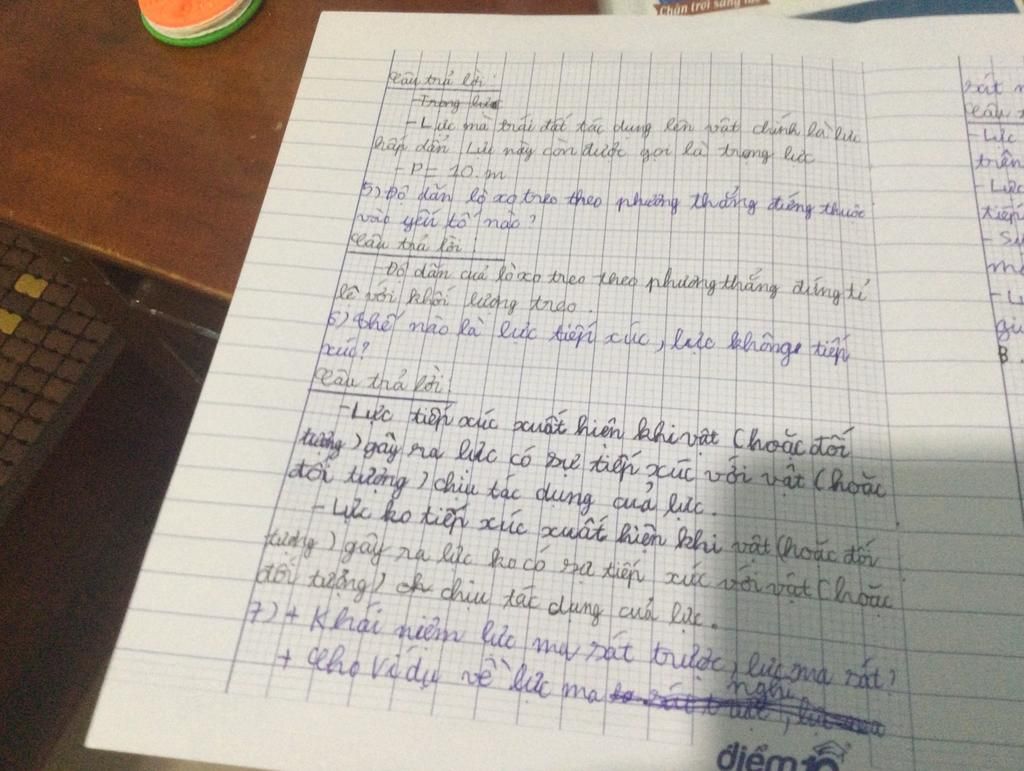 Chân trời sáng
Câu trả lời:
- Trọng lực
- Lực mà trái đất tác dụng lên vật chính là lực
hấp dẫn. Lực này còn được gọi là trọng lực
- P = 10.m
5) Độ dãn lò xo treo theo phương thẳng đứng thuộc
vào yếu tố nào?
Câu trả lời:
- Độ dãn của lò xo treo theo phương thẳng đứng tỉ
lệ với khối lượng treo.
6) Thế nào là lực tiếp xúc, lực không tiếp
xúc?
Câu trả lời:
- Lực tiếp xúc xuất hiện khi vật (hoặc đối
tượng) gây ra lực có sự tiếp xúc với vật (hoặc
đối tượng) chịu tác dụng của lực.
- Lực ko tiếp xúc xuất hiện khi vật (hoặc đối
tượng) gây ra lực ko có sự tiếp xúc với vật (hoặc
đối tượng) chịu tác dụng của lực.
7) + Khái niệm lực ma sát trượt, lực ma sát?
nghỉ
+ Cho ví dụ về lực ma
điểm 10
Câu
- Lực
trên
- Lực
tiếp
- Sự
B.